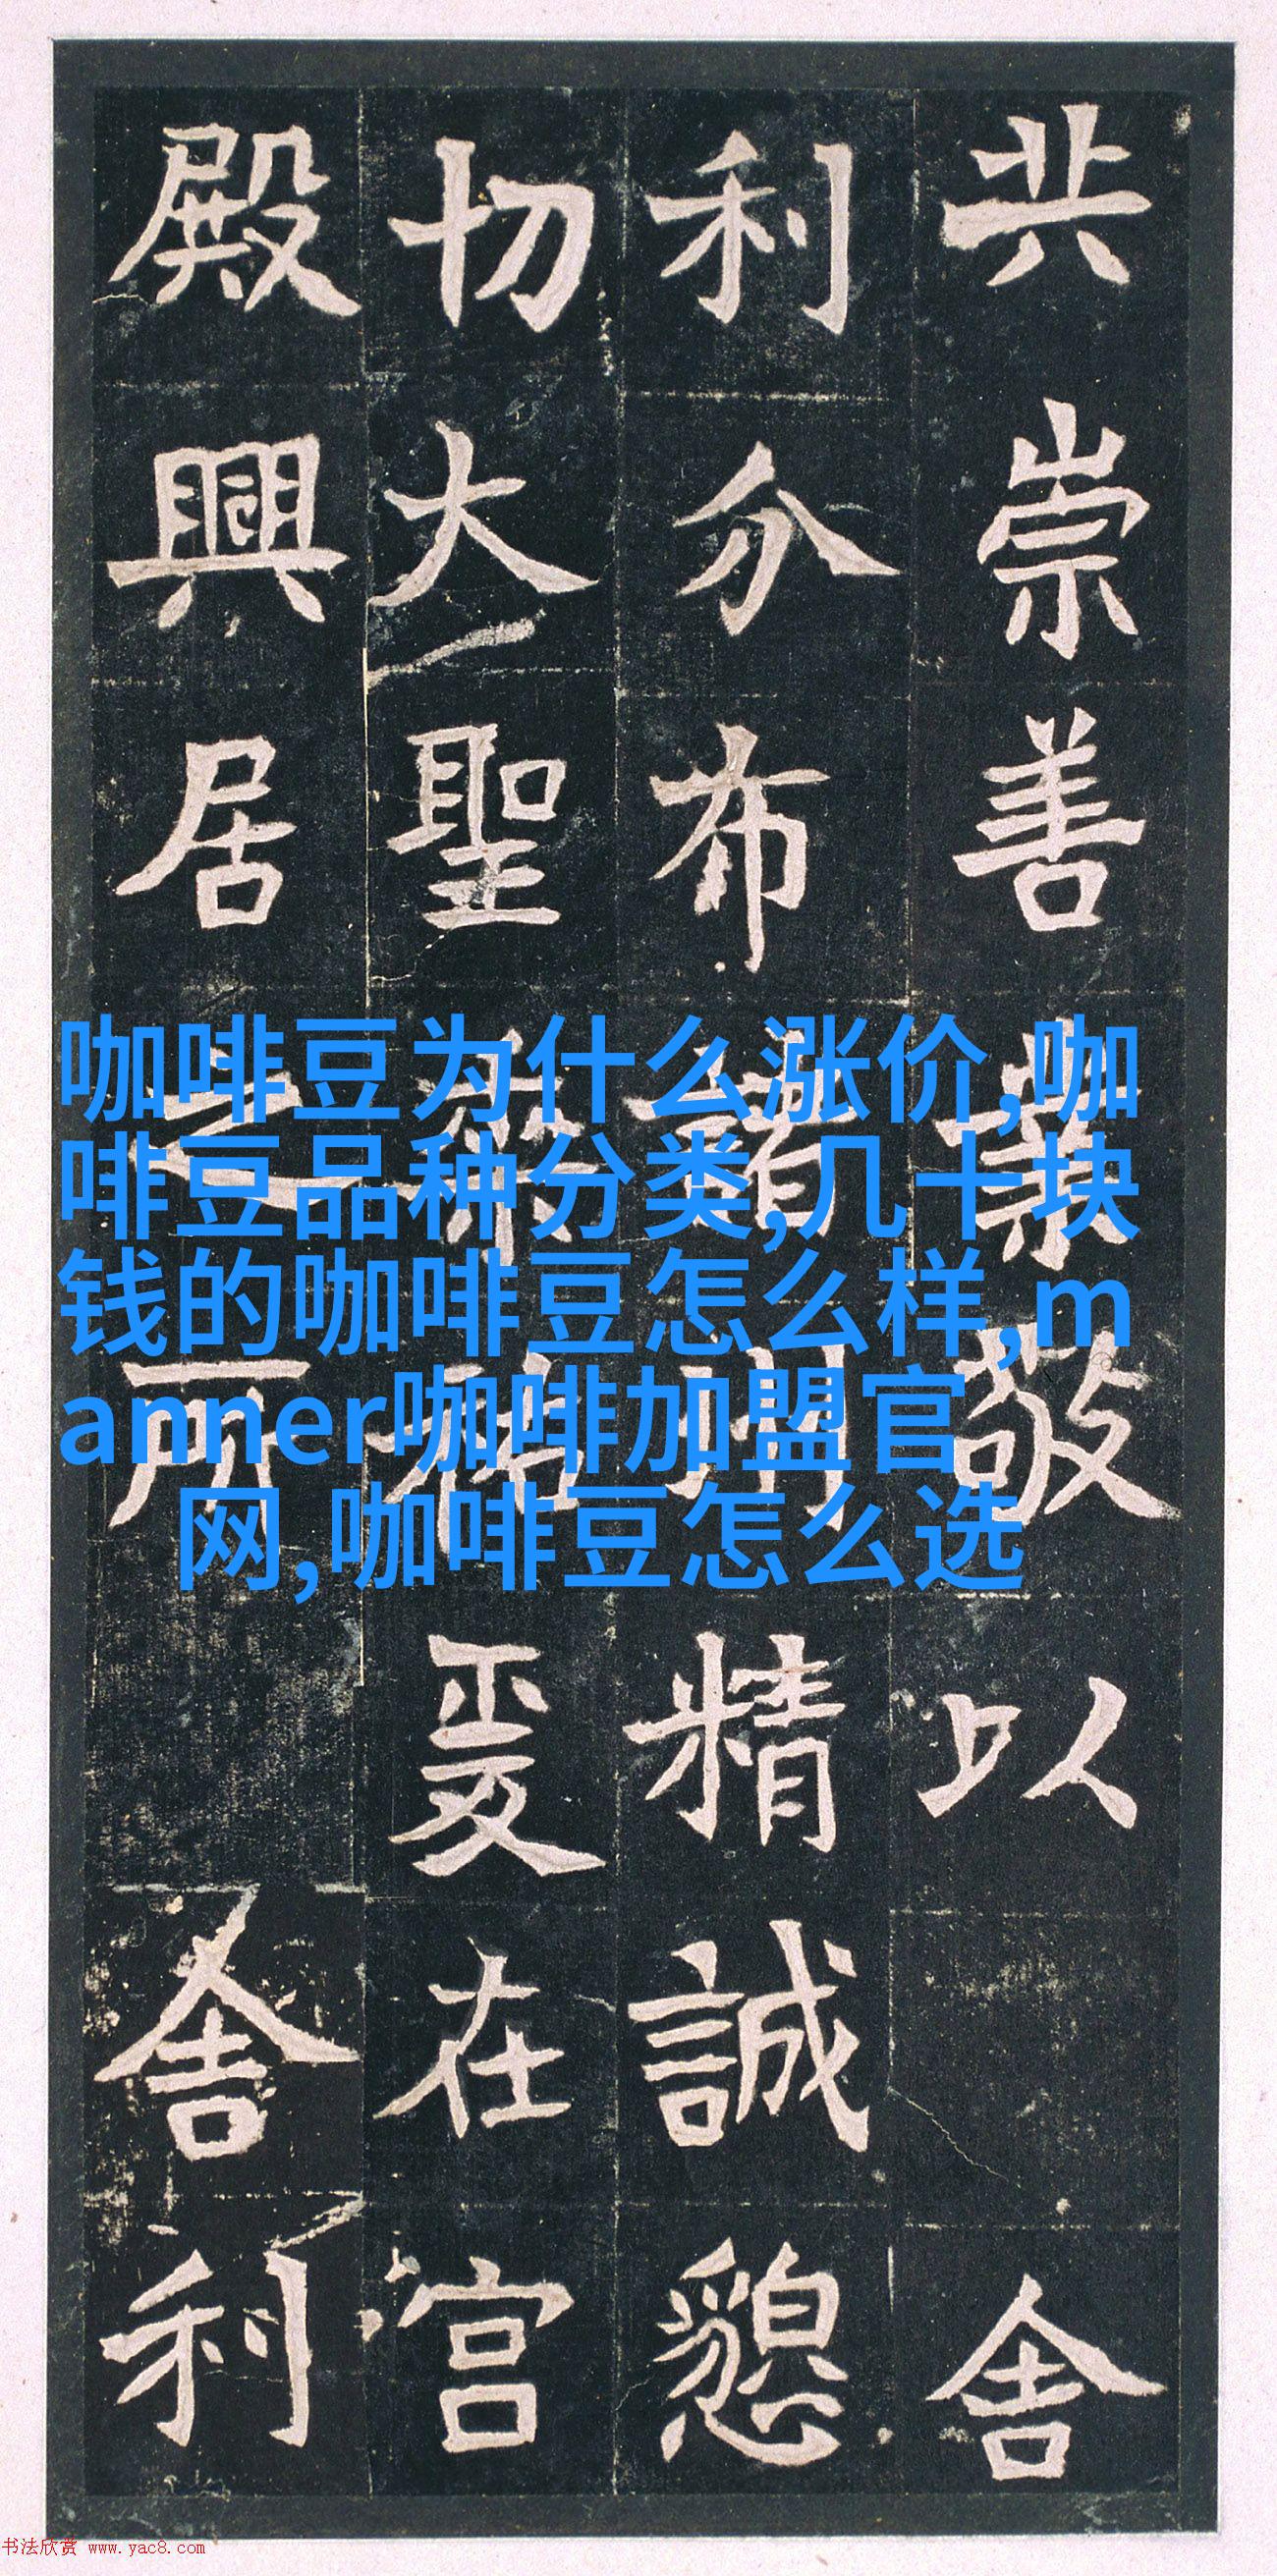 共崇善業敬以舍
利分布諸州精誠懇
切大聖爰在宫
殿興居之所舍利
咖啡豆为什么涨价,咖
啡豆品种分类,几十块
钱的咖啡豆怎么样,m
anner咖啡加盟官
网,咖啡豆怎么选
书法欣赏 www.yac8.com